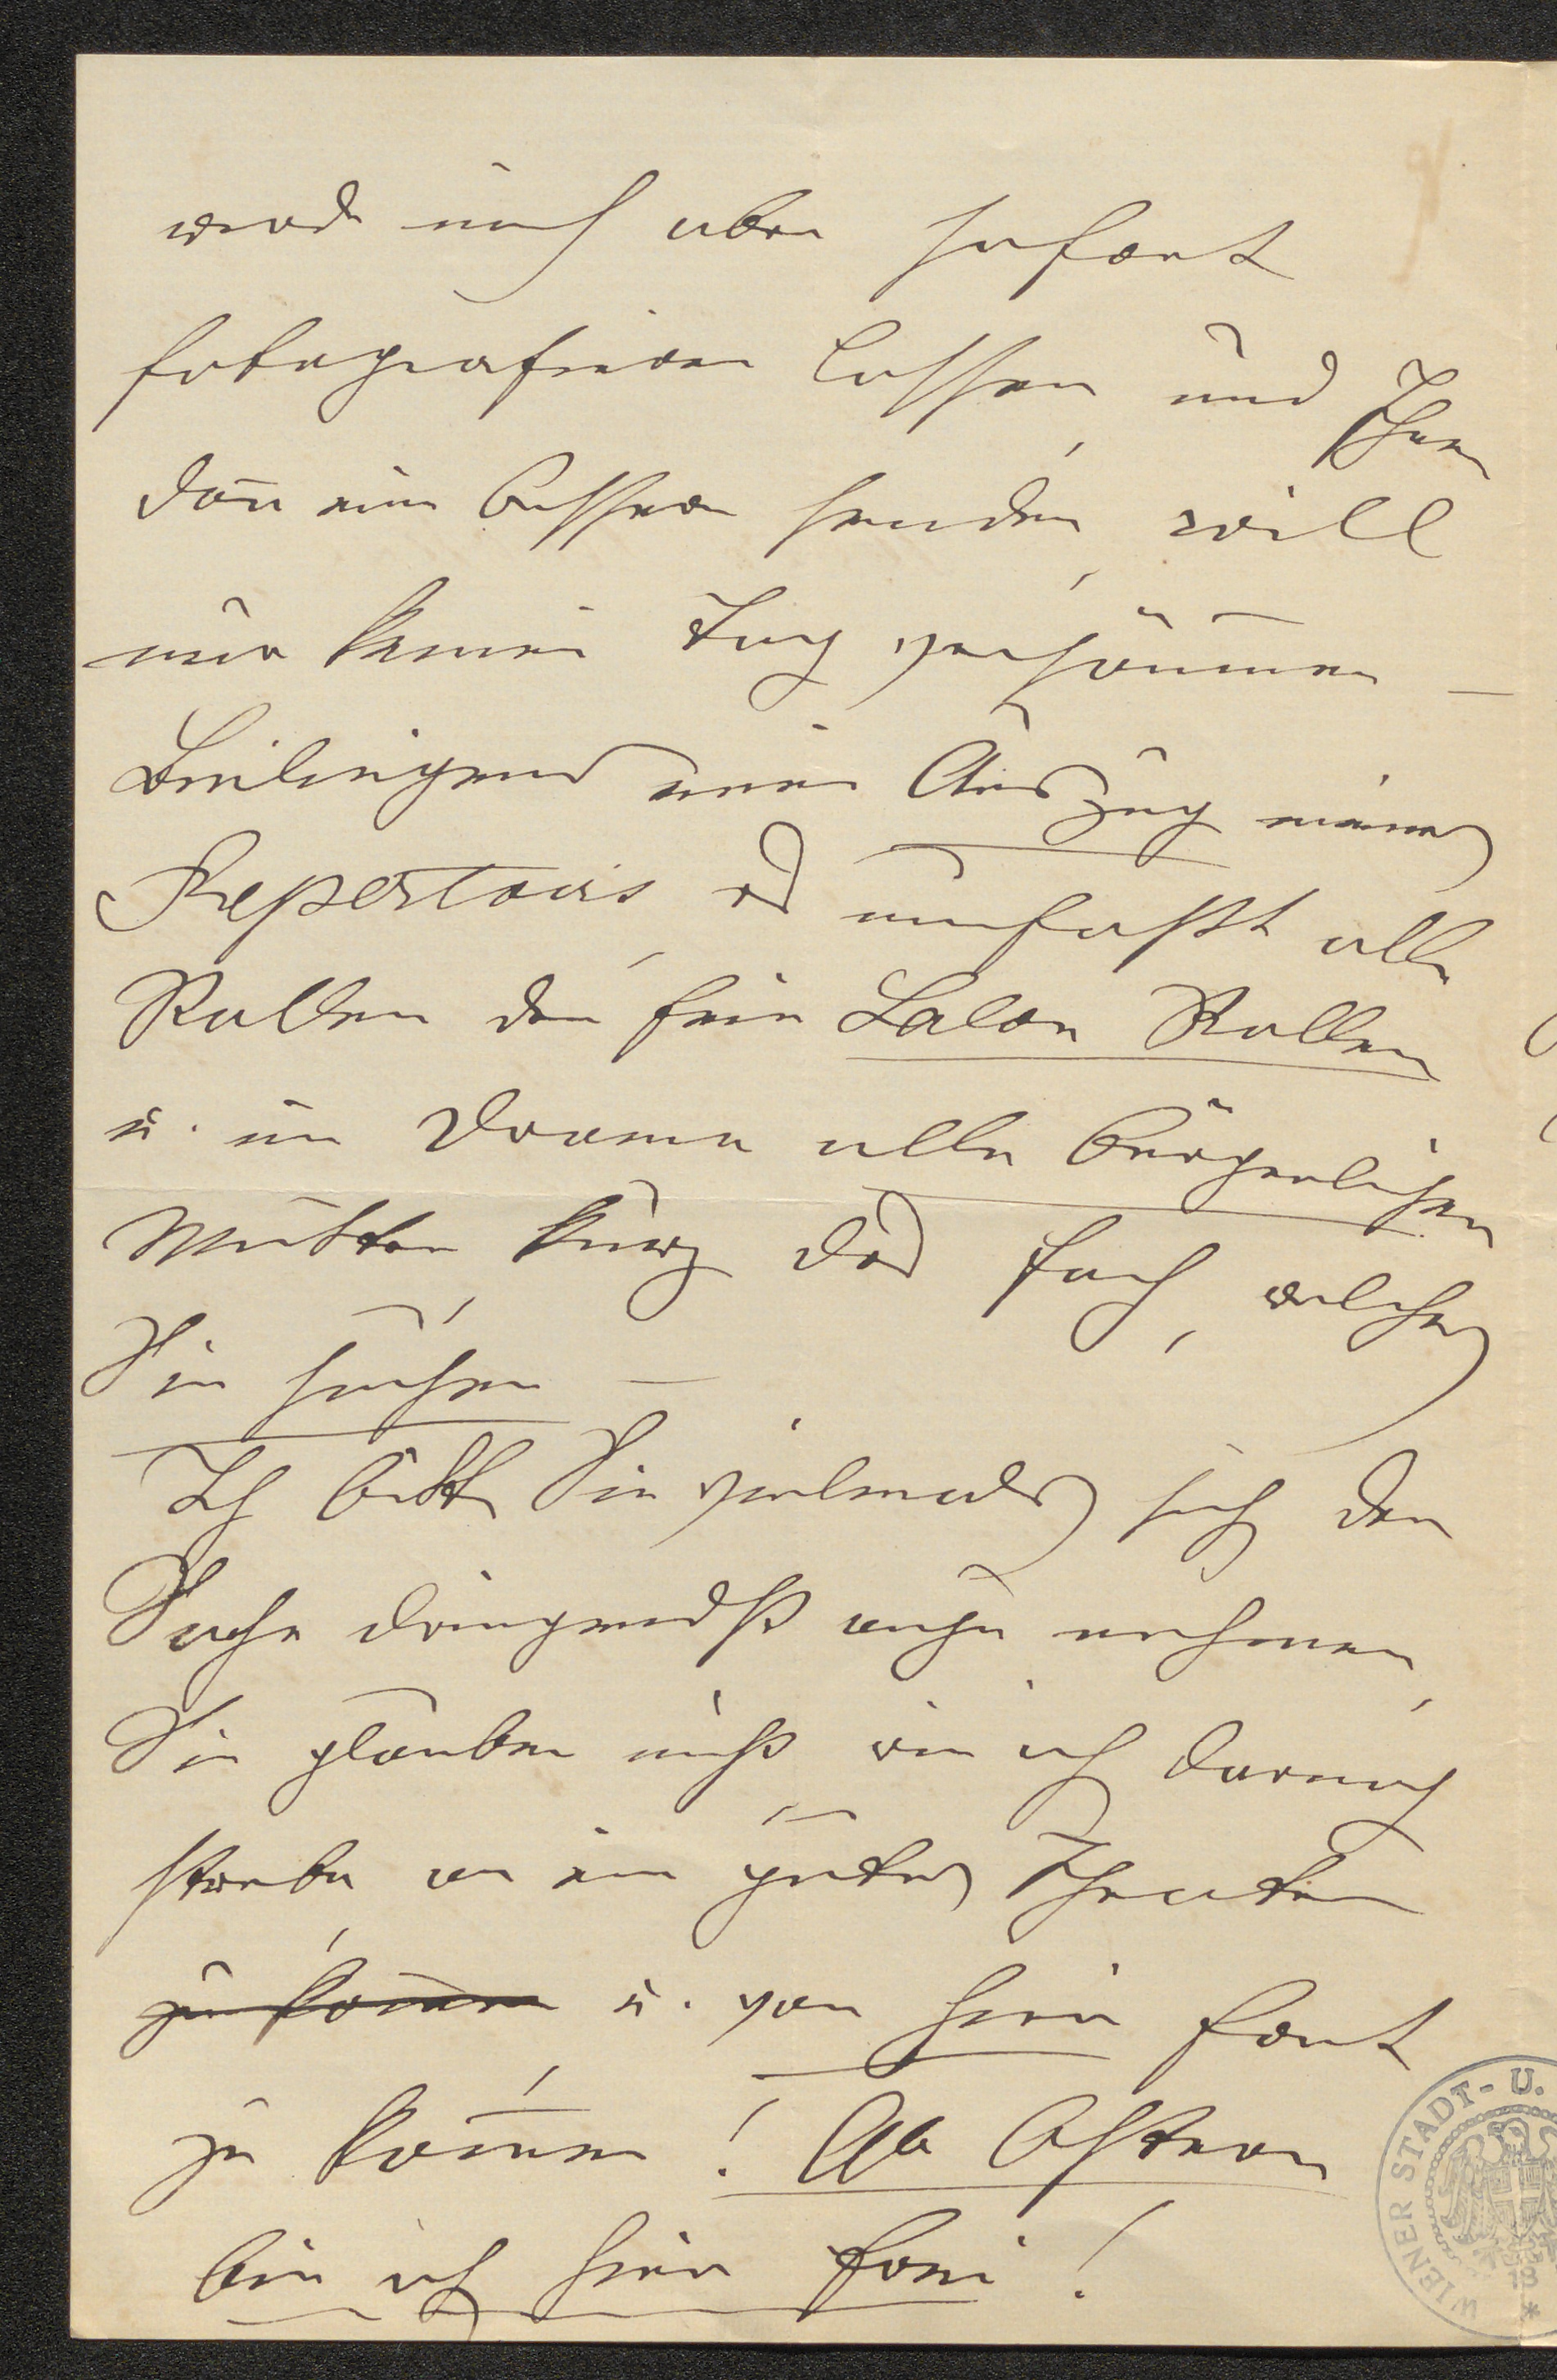 werde mich aber sofort
fotografieren lassen und Ihnen
dañ eine bessere senden, will
nur keinen Tag versäumen –
Beiliegend einen Auszug meines
Repertoirs, es umfaßt alle
Rollen der fein Salon Rollen
u. im Drama alle bürgerlichen
Mütter, kurz das Fach, welches
Sie suchen –
Ich bitte Sie vielmals sich der
Sache dringendst anzu nehmen,
Sie glauben nicht wie ich darnach
strebe an ein gutes Theater
zu kom̄en u. von hier fort
zu kom̄en! Ab Ostern
bin ich hier frei!
WIENER STADT- U.